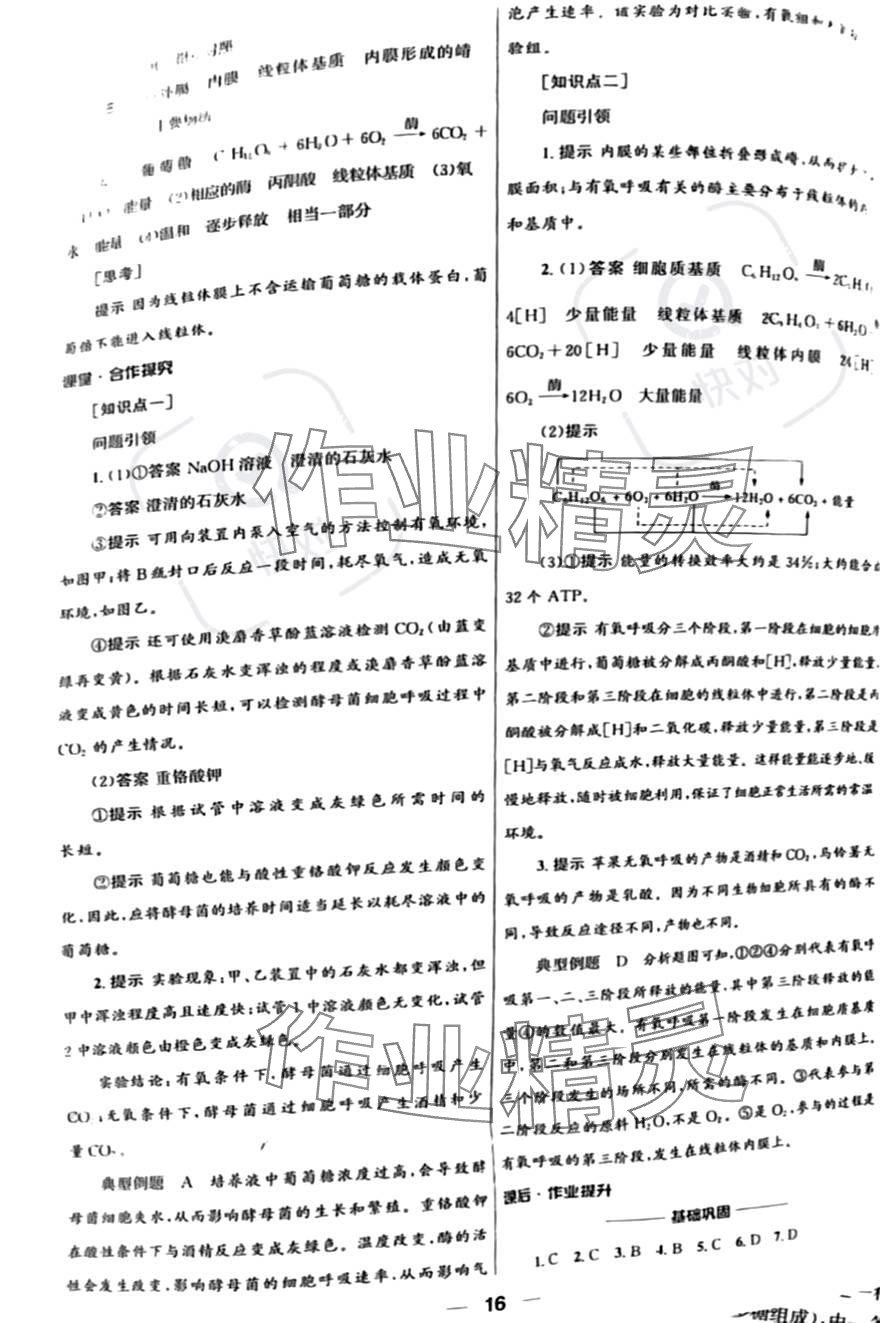 外膜 内膜 线粒体基质 内膜形成的嵴
葡萄糖 C₆H₁₂O₆+6H₂O+6O₂ 酶→ 6CO₂+
能量 (2)相应的酶 丙酮酸 线粒体基质 (3)氧
水 能量 (4)温和 逐步释放 相当一部分
[思考]
提示 因为线粒体膜上不含运输葡萄糖的载体蛋白,葡
萄糖不能进入线粒体。
课堂·合作探究
[知识点一]
问题引领
1.(1)①答案 NaOH溶液 澄清的石灰水
②答案 澄清的石灰水
③提示 可用向装置内泵入空气的方法控制有氧环境,
如图甲;将B瓶封口后反应一段时间,耗尽氧气,造成无氧
环境,如图乙。
④提示 还可使用溴麝香草酚蓝溶液检测CO₂(由蓝变
绿再变黄)。根据石灰水变浑浊的程度或溴麝香草酚蓝溶
液变成黄色的时间长短,可以检测酵母菌细胞呼吸过程中
CO₂的产生情况。
(2)答案 重铬酸钾
①提示 根据试管中溶液变成灰绿色所需时间的
长短。
②提示 葡萄糖也能与酸性重铬酸钾反应发生颜色变
化,因此,应将酵母菌的培养时间适当延长以耗尽溶液中的
葡萄糖。
2.提示 实验现象:甲、乙装置中的石灰水都变浑浊,但
甲中浑浊程度高且速度快;试管1中溶液颜色无变化,试管
2中溶液颜色由橙色变成灰绿色。
实验结论:有氧条件下,酵母菌通过细胞呼吸产生
CO₂;无氧条件下,酵母菌通过细胞呼吸产生酒精和少
量CO₂。
典型例题 A 培养液中葡萄糖浓度过高,会导致酵
母菌细胞失水,从而影响酵母菌的生长和繁殖。重铬酸钾
在酸性条件下与酒精反应变成灰绿色。温度改变,酶的活
性会发生改变,影响酵母菌的细胞呼吸速率,从而影响气
泡产生速率。该实验为对比实验,有氧组和
验组。
[知识点二]
问题引领
1.提示 内膜的某些部位折叠形成嵴,从而
膜面积;与有氧呼吸有关的酶主要分布于线粒体的
和基质中。
2.(1)答案 细胞质基质 C₆H₁₂O₆ 酶→ 2C₃H₄
4[H] 少量能量 线粒体基质 2C₃H₄O₃+6H₂O
6CO₂+20[H] 少量能量 线粒体内膜 24[H]
6O₂ 酶→ 12H₂O 大量能量
(2)提示
C₆H₁₂O₆+6O₂+6H₂O 酶→ 12H₂O+6CO₂+能量
(3)①提示 能量的转换效率大约是34%;大约能合成
32个ATP。
②提示 有氧呼吸分三个阶段,第一阶段在细胞的细胞质
基质中进行,葡萄糖被分解成丙酮酸和[H],释放少量能量,
第二阶段和第三阶段在细胞的线粒体中进行,第二阶段是丙
酮酸被分解成[H]和二氧化碳,释放少量能量,第三阶段是
[H]与氧气反应成水,释放大量能量。这样能量能逐步地、缓
慢地释放,随时被细胞利用,保证了细胞正常生活所需的常温
环境。
3.提示 苹果无氧呼吸的产物是酒精和CO₂,马铃薯无
氧呼吸的产物是乳酸。因为不同生物细胞所具有的酶不
同,导致反应途径不同,产物也不同。
典型例题 D 分析题图可知,①②④分别代表有氧呼
吸第一、二、三阶段所释放的能量,其中第三阶段释放的能
量④的数值最大。有氧呼吸第一阶段发生在细胞质基质
中,第二和第三阶段分别发生在线粒体的基质和内膜上,
三个阶段发生的场所不同,所需的酶不同。③代表参与第
二阶段反应的原料H₂O,不是O₂。⑤是O₂,参与的过程是
有氧呼吸的第三阶段,发生在线粒体内膜上。
课后·作业提升
基础巩固
1.C 2.C 3.B 4.B 5.C 6.D 7.D
16
作业精灵
作业精灵
快对
快对